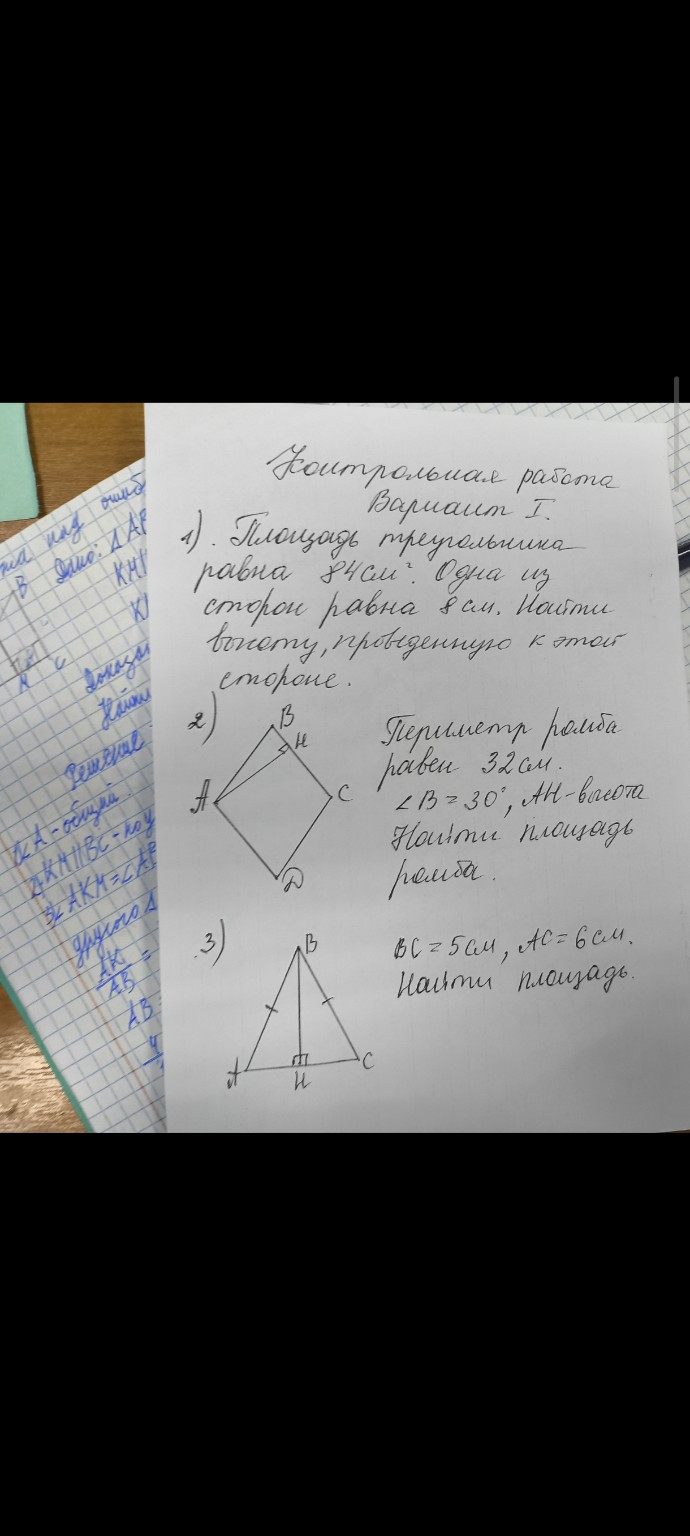 Контрольная работа
Вариант I.
1). Площадь треугольника
равна 84 см². Одна из
сторон равна 8 см. Найти
высоту, проведенную к этой
стороне.
2)
B
H
A
C
D
Периметр ромба
равен 32 см.
∠B = 30°, AH - высота
Найти площадь
ромба.
3)
B
A
H
C
BC = 5 см, AC = 6 см.
Найти площадь.
над ошиб
B Дано: △AB
KM
K
M C
Доказа
Найти
Решение
∠A - общий
KM||BC - по у
∠AKM = ∠AB
другого △
AK
AB =
AB =